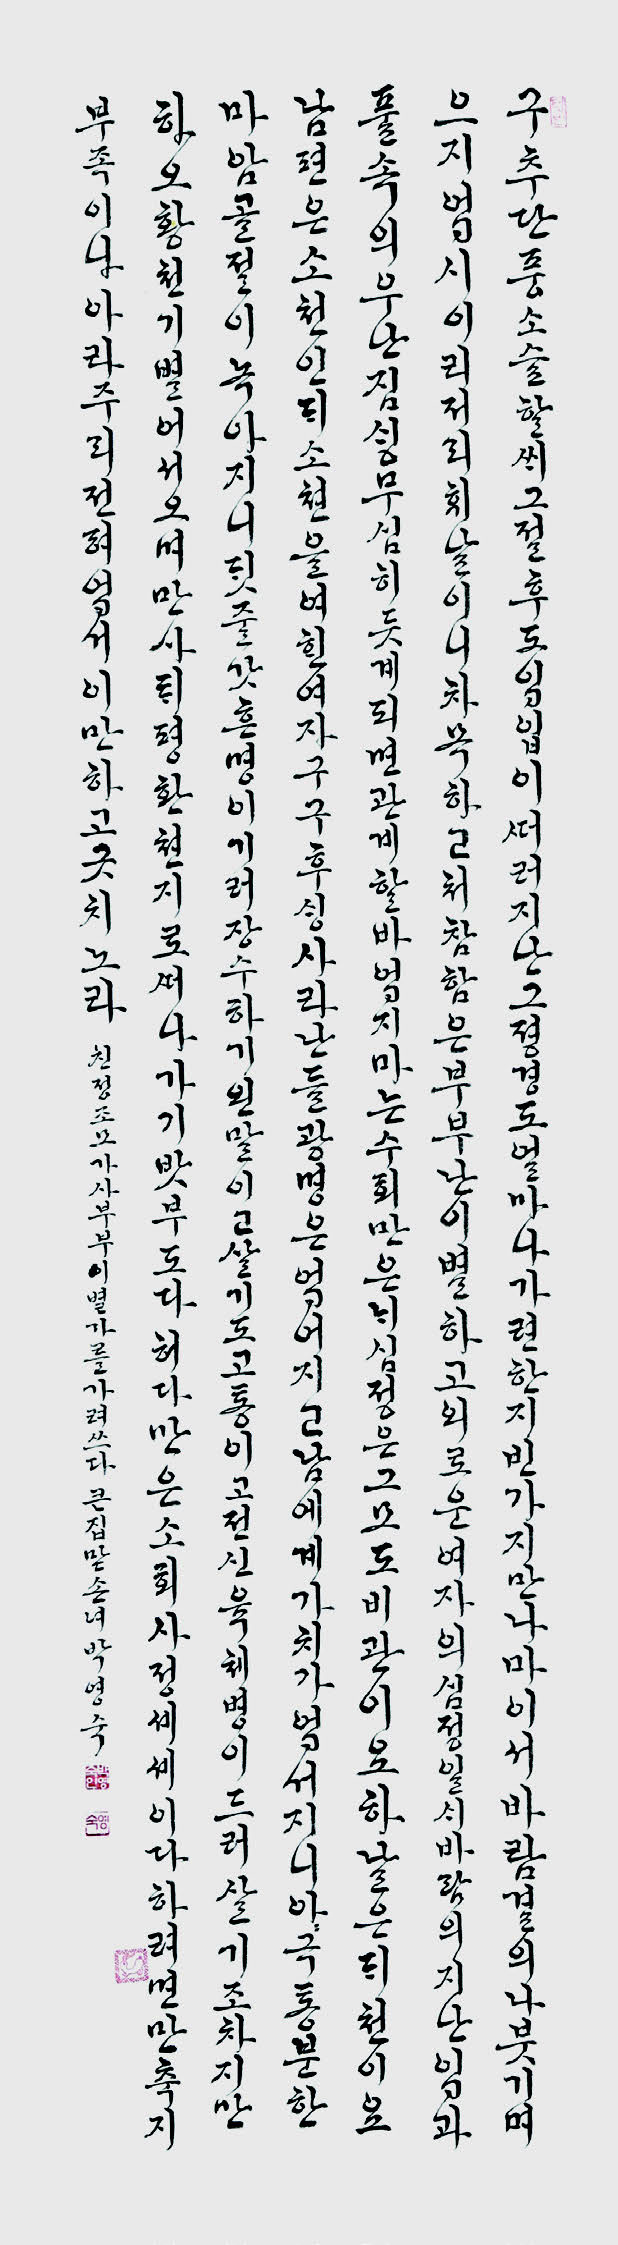 구추단풍소슬할씨그절후도입입이떠러지난그졍경도얼마나가련한지빈가지만나마이서바람결의나붓기며
으지업시이리저리휘날이니차목하고처참함은부부난이별하고외로운여자의심정일시바람의지난입과
풀속의우난짐싱무심히듯게되면관계할바업지마는수회만은늬심정은그모도비관이요하날은듸천이요
남편은소천인듸소천을여흰여자구구후싱사라난들광명은업어지고남에게가치가업서지니아극통분한
마암골절이녹아지니듯줄갓흔명이기러장수하기왼말이고살기도고통이고전신육체병이드러살기조차지만
하오황천기별어서오며만사듸평환천지로떠나가기밧부도다허다만은소회사정세세이다하려면만축지
부족이나아라주리전혀업서이만하고긋치노라
친정조모가사부부이별가를가려쓰다 큰집맏손녀박영숙